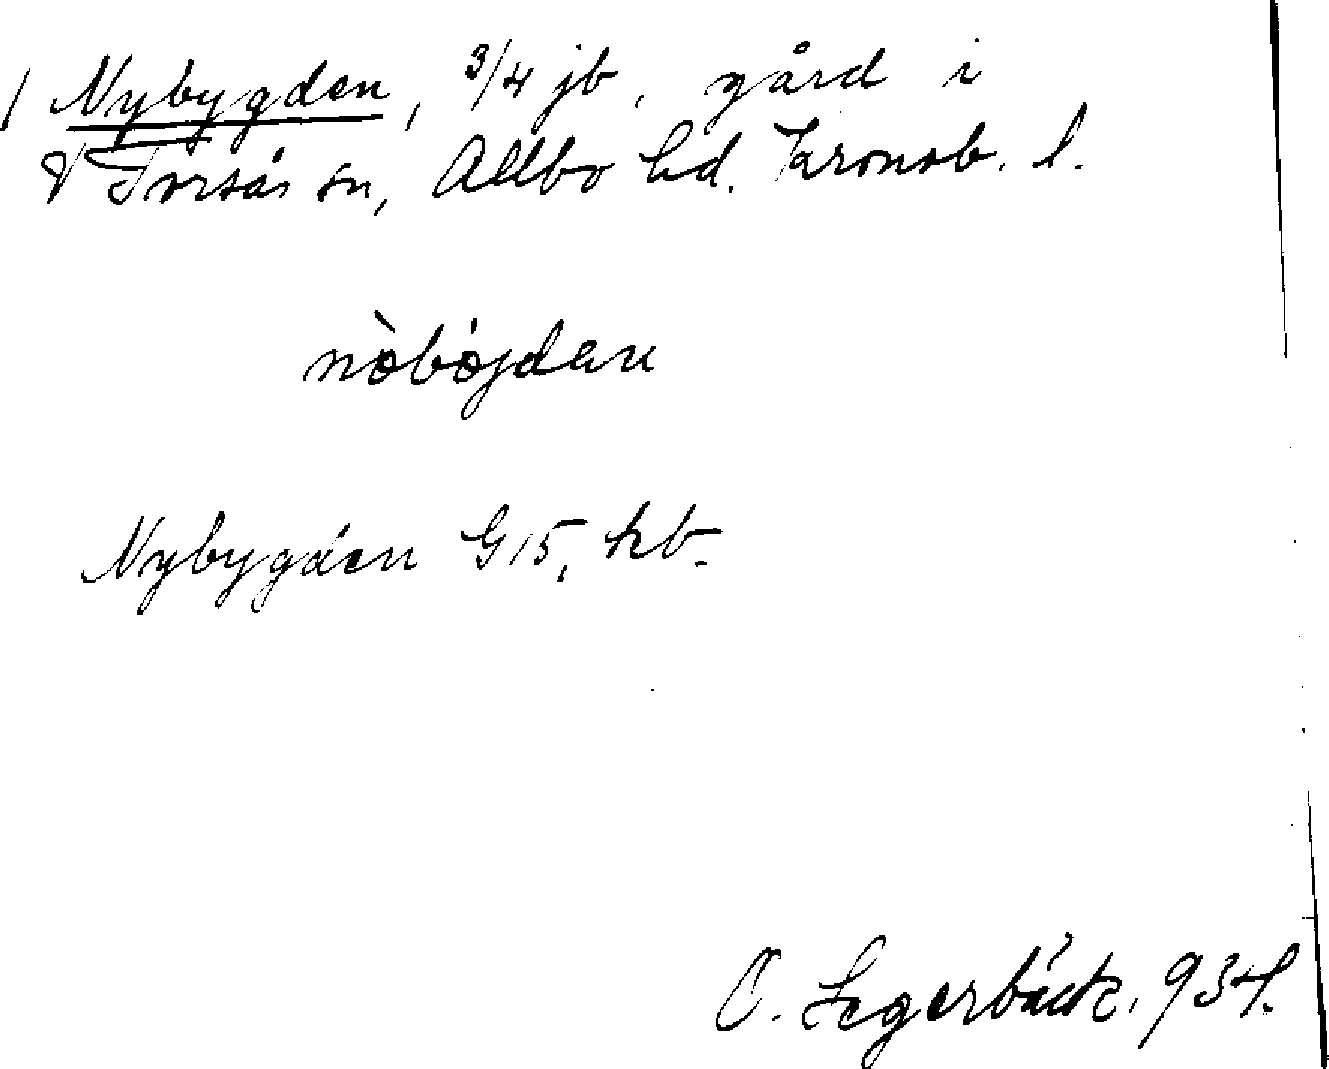 / Nybygden, 3/4 jb, gård i
V Torsås sn, Allbo hd. Kronob. l.
nòbójden
Nybygden G15, kb.
O. Segerbäck, 934.